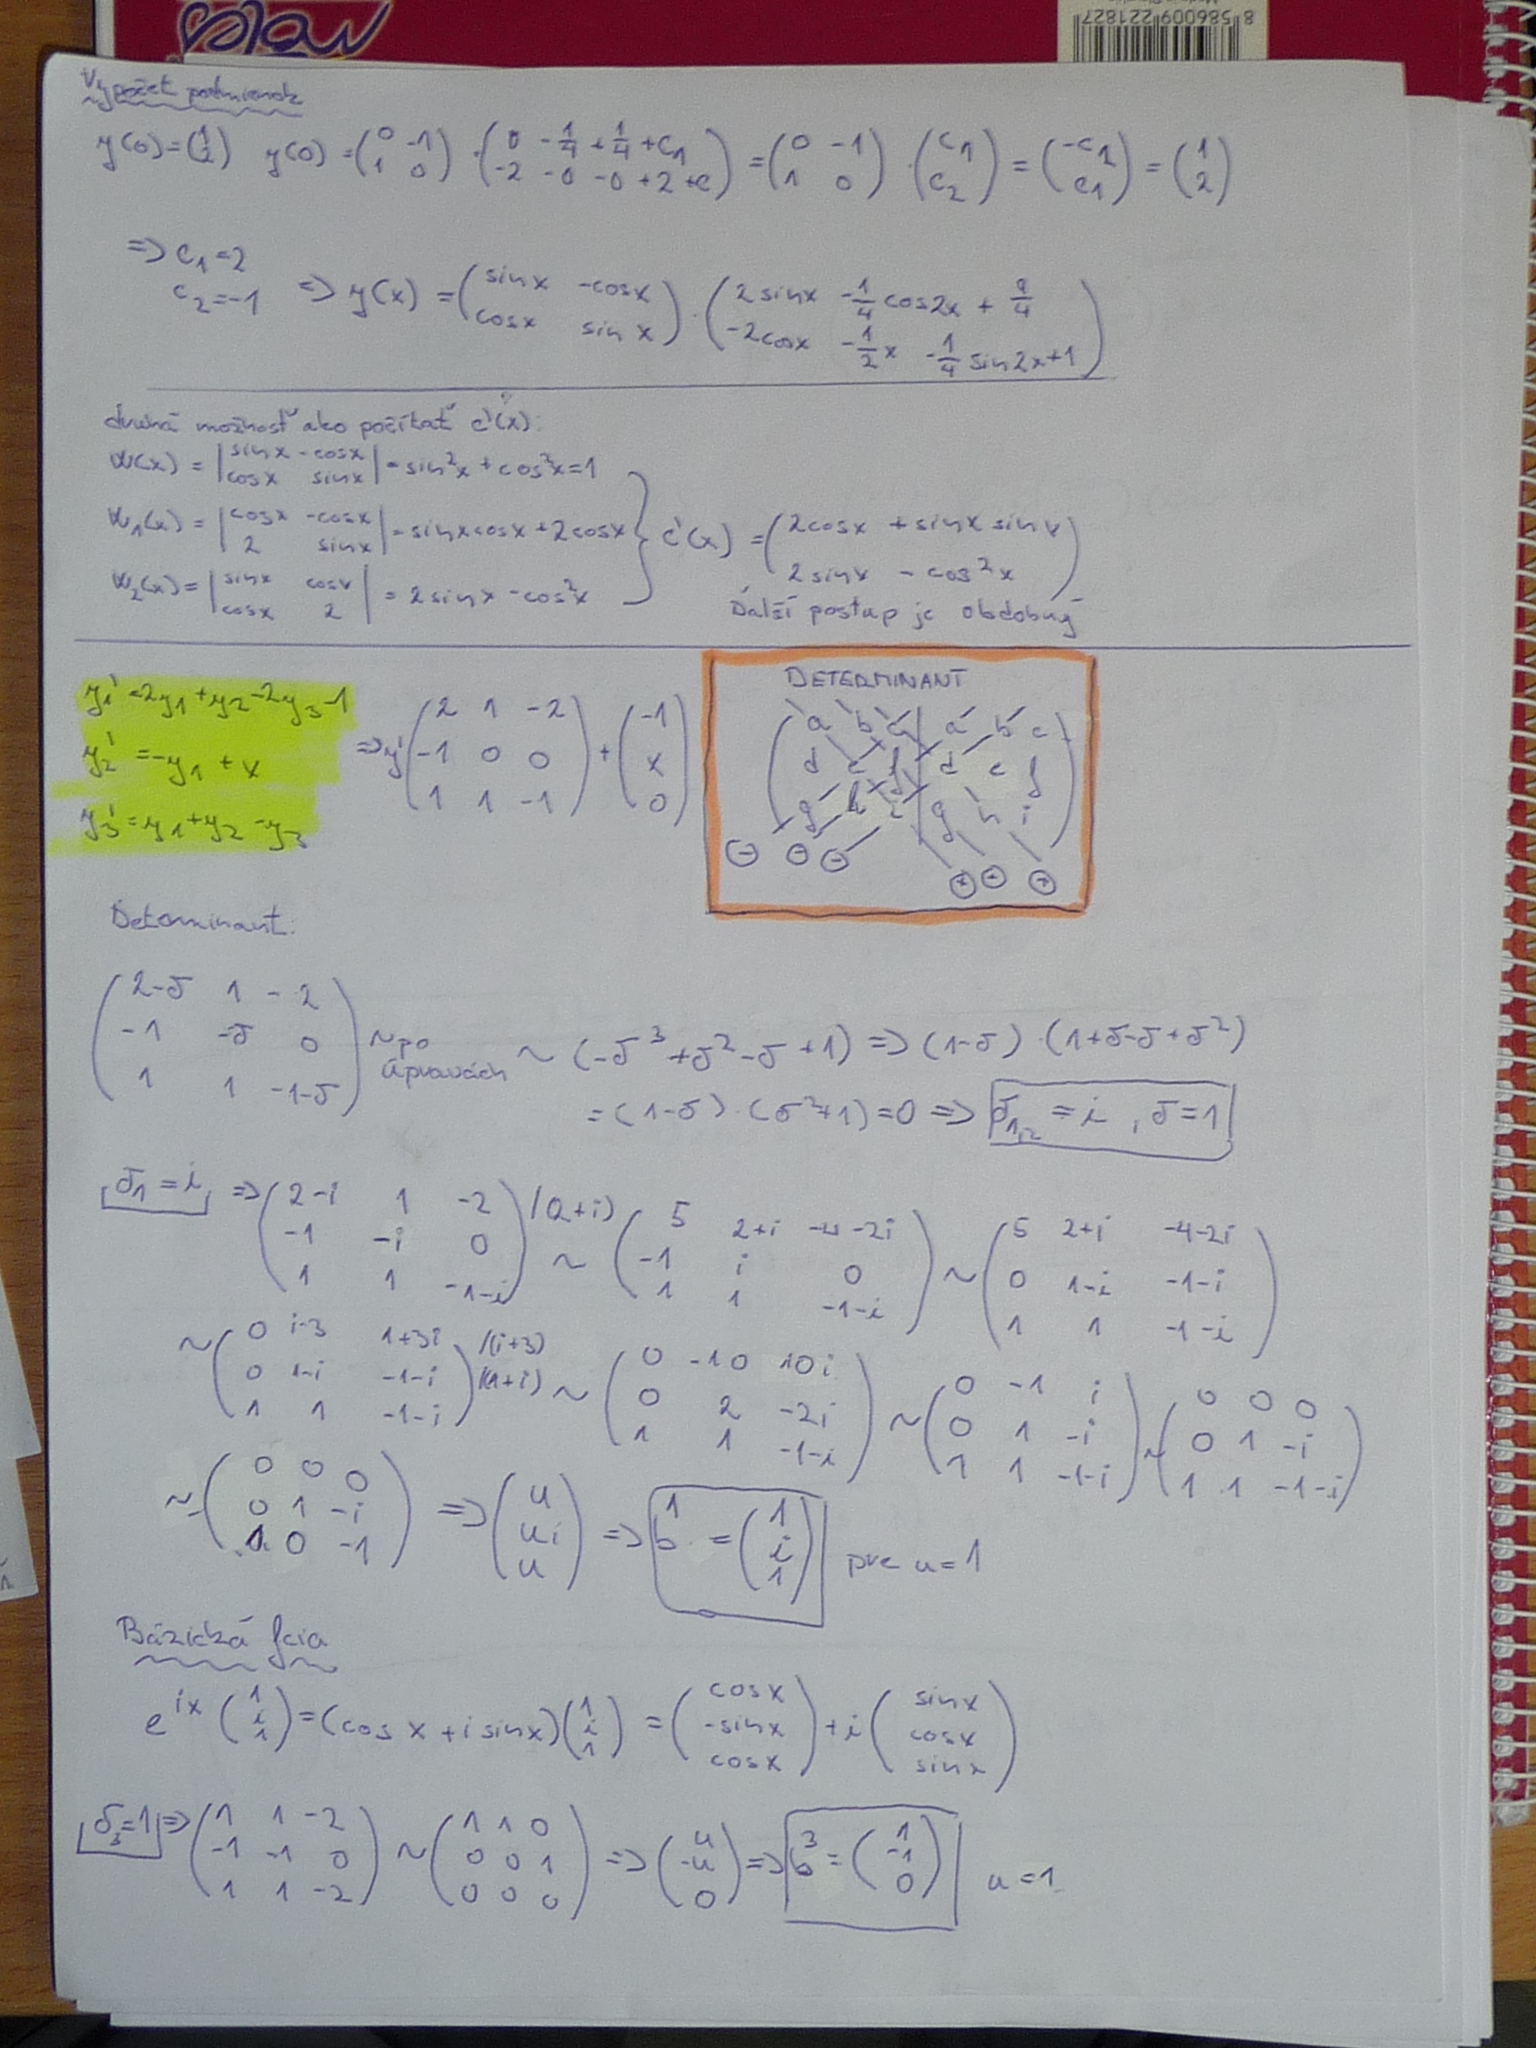 8 586009 221827
Výpočet podmienok
y(0)=(1 2) y(0) = (0 -1 1 0) · (0 - 1/4 + 1/4 + c1 -2 -0 -0 +2 +c) = (0 -1 1 0) · (c1 c2) = (-c2 c1) = (1 2)
=> c1=2
c2=-1 => y(x) = (sinx -cosx cosx sinx) · (2sinx - 1/4 cos2x + 9/4 -2cosx - 1/2 x - 1/4 sin2x+1)
druhá možnosť ako počítať c'(x):
W(x) = |sinx -cosx cosx sinx| = sin²x + cos²x = 1
W1(x) = |cosx -cosx 2 sinx| = sinxcosx + 2cosx
W2(x) = |sinx cosx cosx 2| = 2sinx - cos²x
c'(x) = (2cosx + sinx sinx 2sinx - cos²x)
Ďalší postup je obdobný
y1' = 2y1 + y2 - 2y3 - 1
y2' = -y1 + x
y3' = y1 + y2 - y3
=> y' (2 1 -2 -1 0 0 1 1 -1) + (-1 x 0)
DETERMINANT
a b c a b c
d e f d e f
g h i g h i
⊖ ⊖ ⊖ ⊕ ⊕ ⊕
Determinant:
(2-δ 1 -2 -1 -δ 0 1 1 -1-δ) ~ po úpravách ~ (-δ³ + δ² - δ + 1) => (1-δ) · (1+δ-δ+δ²)
= (1-δ) · (δ²+1) = 0 => δ1,2 = i , δ=1
δ1 = i => (2-i 1 -2 -1 -i 0 1 1 -1-i) /(2+i) ~ (5 2+i -4-2i -1 i 0 1 1 -1-i) ~ (5 2+i -4-2i 0 1-i -1-i 1 1 -1-i)
~ (0 i-3 1+3i 0 1-i -1-i 1 1 -1-i) /(i+3) /(1+i) ~ (0 -10 10i 0 2 -2i 1 1 -1-i) ~ (0 -1 i 0 1 -i 1 1 -1-i) ~ (0 0 0 0 1 -i 1 1 -1-i)
~ (0 0 0 0 1 -i 1 0 -1) => (u ui u) => b¹ = (1 i 1) pre u=1
Bázická fcia
e^ix (1 i 1) = (cos x + i sinx) (1 i 1) = (cosx -sinx cosx) + i (sinx cosx sinx)
δ3=1 => (1 1 -2 -1 -1 0 1 1 -2) ~ (1 1 0 0 0 1 0 0 0) => (u -u 0) => b³ = (1 -1 0) u=1